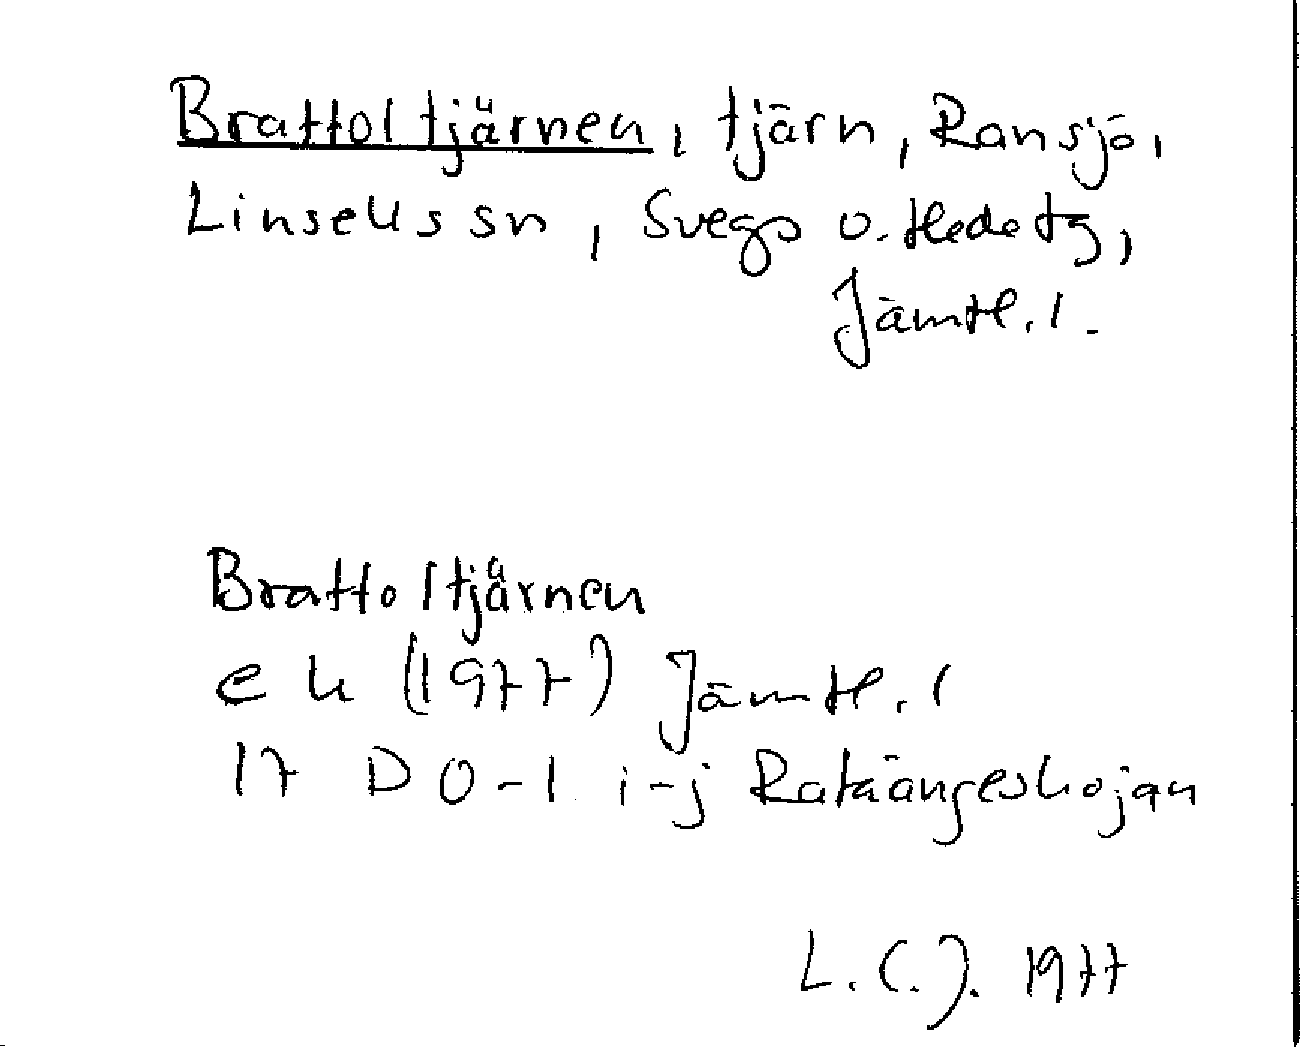 Brattoltjärnen, tjärn, Ransjö,
Linsells sn, Svegs o. Hede tg,
Jämtl. l.
Brattoltjärnen
ek (1977) Jämtl. l
17 D 0-1 i-j Rataängeskojan
L.C.J. 1977